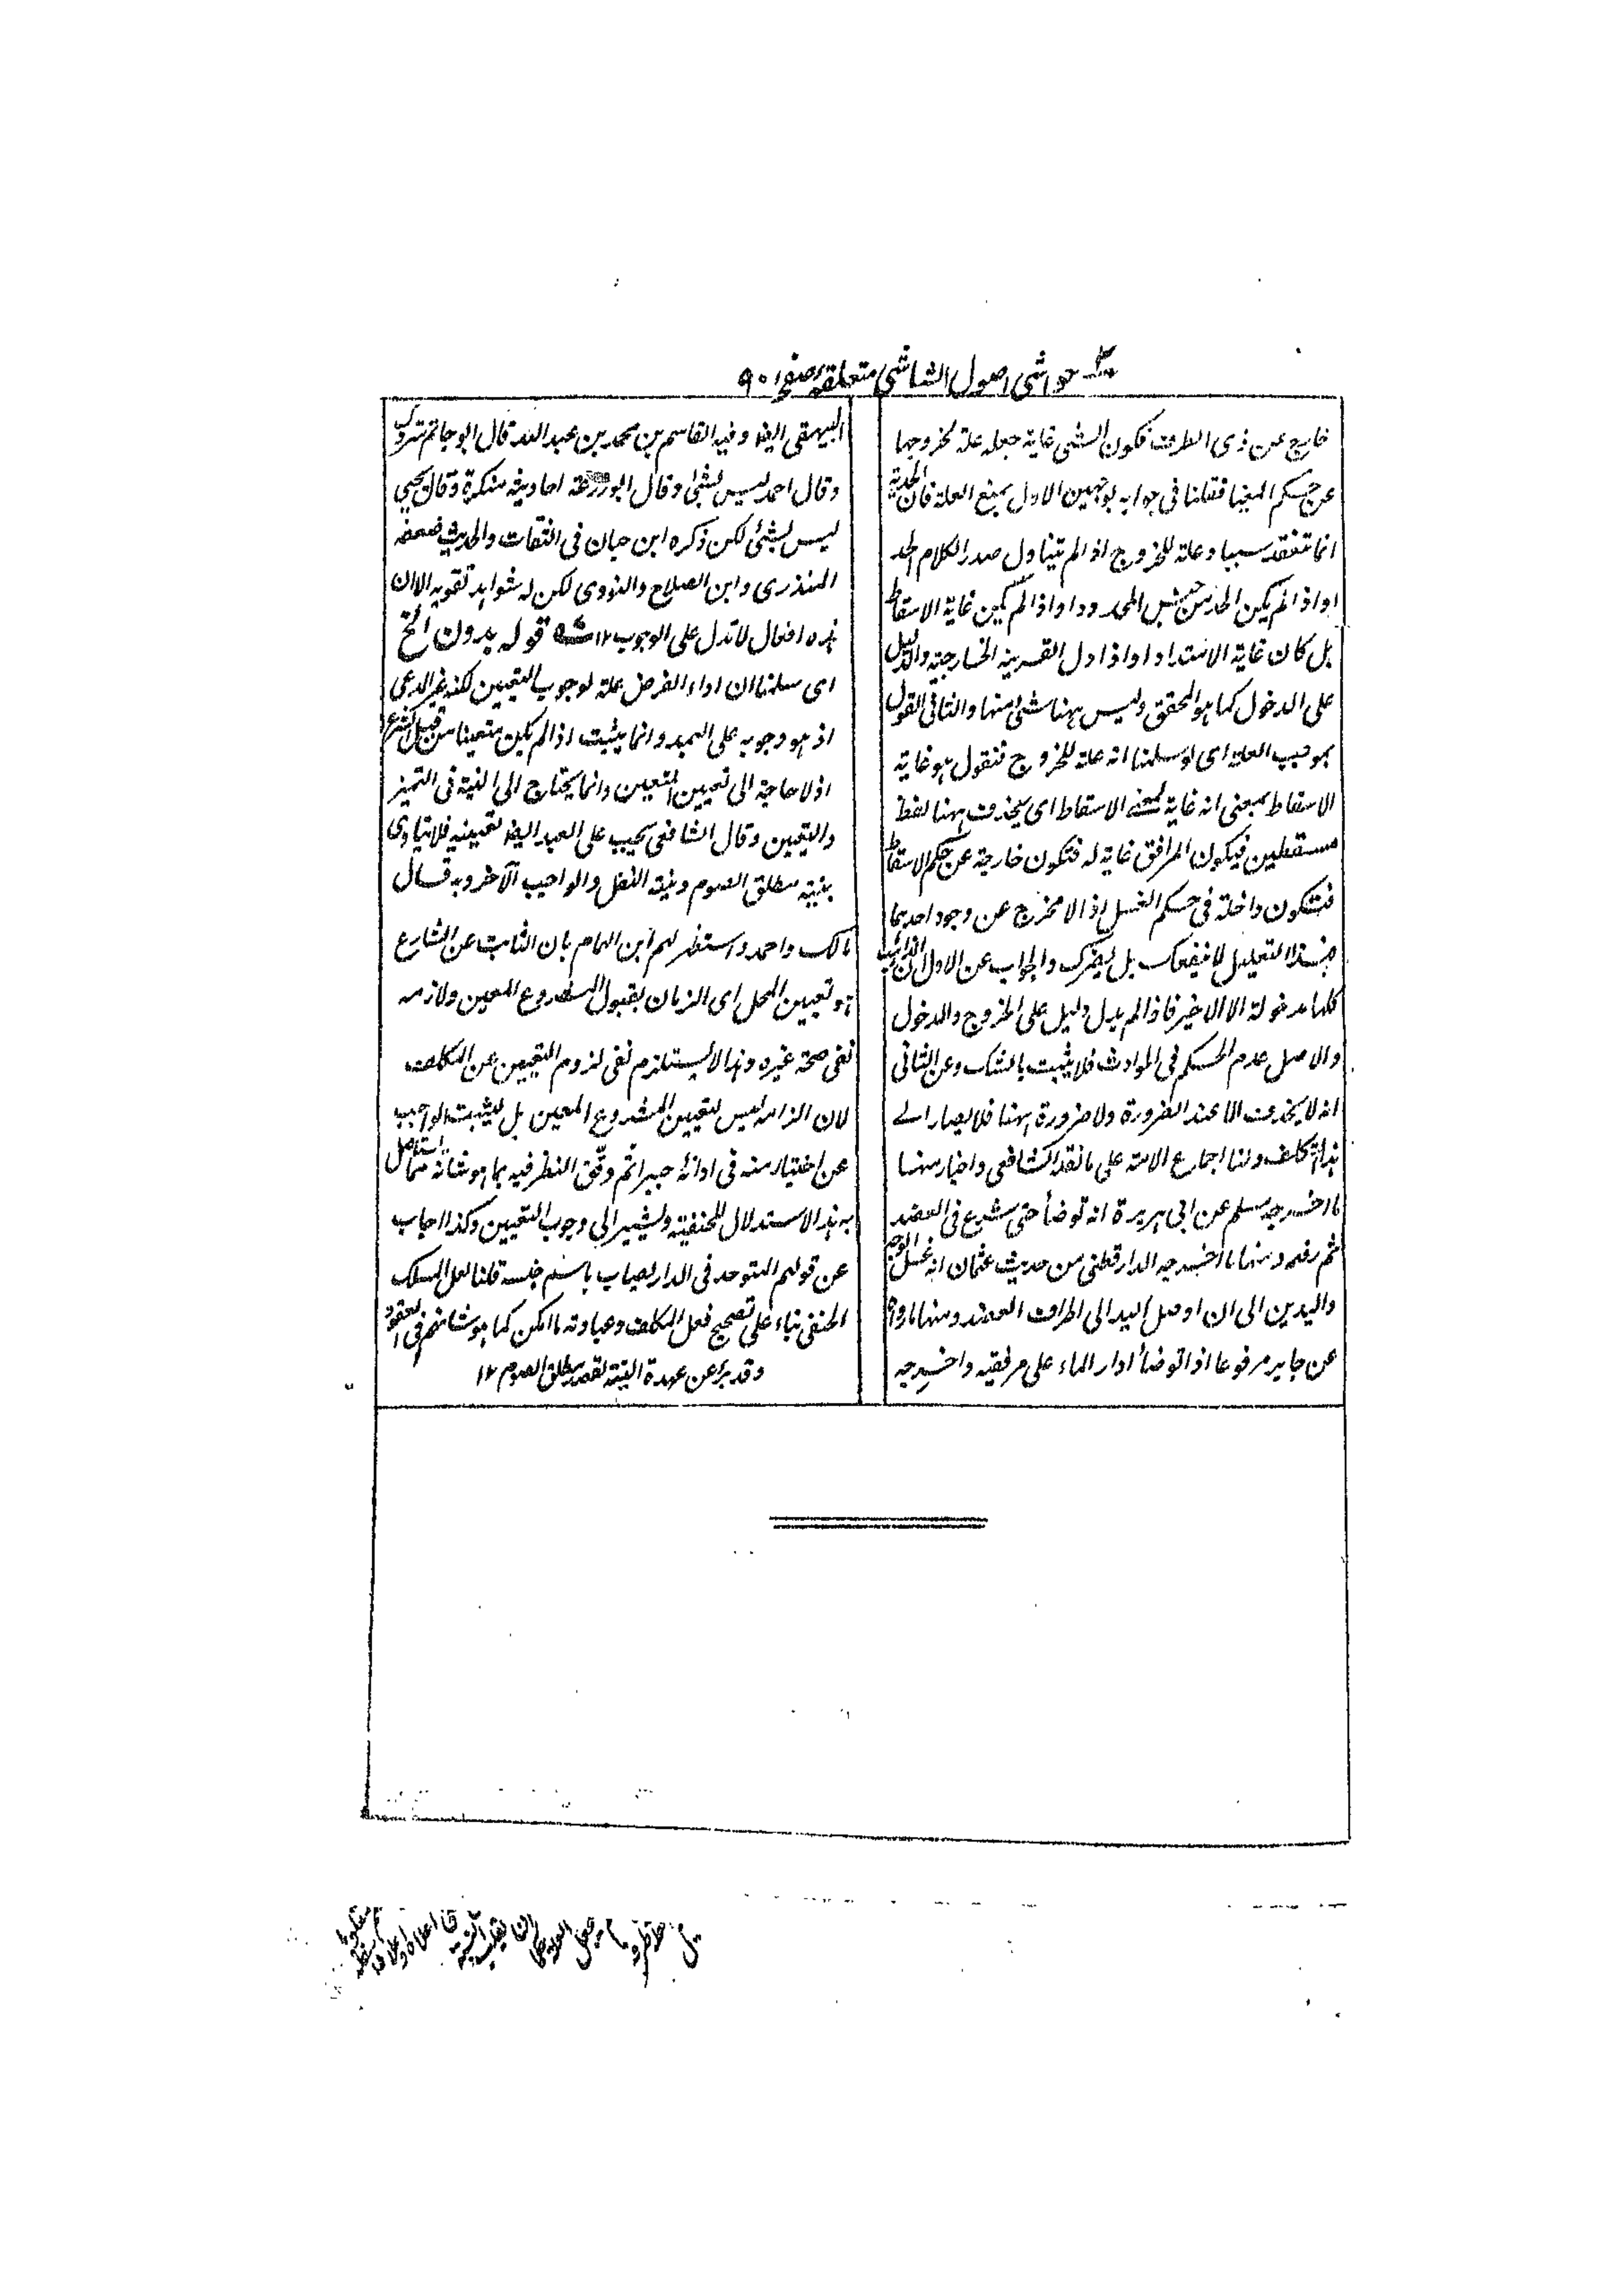 حواشی اصول الشاشی متعلقہ صفحہ ۹۰
خارج عن ذی الطرف فکون الشئ غایة جعله علة لخروجها
عن حکم المغیا فقلنا فی جوابه بوجهین الاول بمنع العلة فان الحدیة
انما تنعقد سببا وعلة للخروج اذا لم یتناول صدر الکلام الحد
او اذا لم یکن الحد من جنس المحدود او اذا لم یکن غایة الاسقاط
بل کان غایة الامتداد او اذا دل القرینة الخارجیة والدلیل
علی الدخول کما هو المحقق ولیس ههنا شئ منها والثانی القول
بموجب العلة ای لو سلمنا انه علة للخروج فنقول هو غایة
الاسقاط بمعنی انه غایة الاسقاط ای یحذف ههنا لفظ
مسقطین فیکون المرافق غایة له فتکون خارجة عن حکم الاسقاط
فتکون داخلة فی حکم الغسل اذ لا مخرج عن وجود احدهما
فهذا التعلیل لا ینفعک بل یضرک والجواب عن الاول ان
کلها مدخولة الا الاخیر فاذا لم یدل دلیل علی الخروج والدخول
والاصل عدم الحکم فی الحوادث فلا یثبت بالشک وعن الثانی
انه لا یحذف الا عند الضرورة ولا ضرورة ههنا فلا یصار الے
هذا التکلف ولنا اجماع الامة علی ما نقله الشافعی واخبار منها
ما اخرجه مسلم عن ابی هریرة انه توضأ حتی شرع فی العضد
ثم رفعه ومنها ما اخرجه الدارقطنی من حدیث عثمان انه غسل الوجه
والیدین الی ان اوصل الید الی اطراف العضد ومنها ما رواه
عن جابر مرفوعا اذا توضأ ادار الماء علی مرفقیه واخرجه
البیهقی ایضا وفیه القاسم بن محمد بن عبد الله قال ابو حاتم متروک
وقال احمد لیس بشئ وقال ابو زرعة احادیثه منکرة وقال یحیی
لیس بشئ لکن ذکره ابن حبان فی الثقات والحدیث ضعفه
المنذری وابن الصلاح والنووی لکن له شواهد تقویه الا ان
هذه افعال لا تدل علی الوجوب ۱۲ قوله بدون الخ
ای سلمنا ان اداء الفرض علة لوجوب التعیین لکنه غیر المدعی
اذ هو وجوبه علی العبد وانما یثبت اذا لم یکن متعینا من قبل الشرع
اذ لا حاجة الی تعیین المتعین وانما یحتاج الی النیة فی التمیز
والتعیین وقال الشافعی یجب علی العبد ایضا تعیینه فلا یتادی
بنیة مطلق الصوم ونیة النفل والواجب الآخر وبه قال
مالک واحمد واستظهر لهم ابن الهمام بان الثابت عن الشارع
هو تعیین المحل ای الزمان بقبول المشروع المعین ولازمه
نفی صحة غیره وهذا لا یستلزم نفی لزوم التعیین عن المکلف
لان الزامه لیس لتعیین المشروع المعین بل لیثبت الواجب
عن اختیار منه فی ادائه جبرا ثم وفق النظر فیه بما هو شانه مما
به هذا الاستدلال للحنفیة ویشیر الی وجوب التعیین وکذا اجاب
عن قولهم المتوحد فی الدار یصاب باسم جنسه قلنا لعل المسلک
الحنفی بناء علی تصحیح فعل المکلف وعبادته ما امکن کما هو شانهم فی العقود
وقد برئ عن عهدة النیة لقصد مطلق الصوم ۱۲